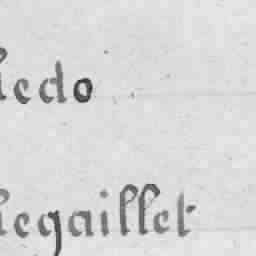 edo
egaillet